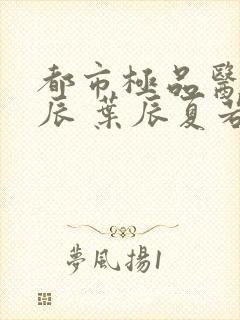 都市極品醫
辰 葉辰夏若
夢風揚1